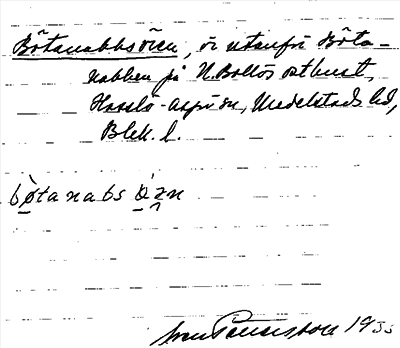 Bötanabbsören, ö utanför Böta-
nabben på N. Bollös ostkust,
Hasslö-Aspö sn, Medelstads hd,
Blek. l.
bøtanabs
Sven Benson 1933